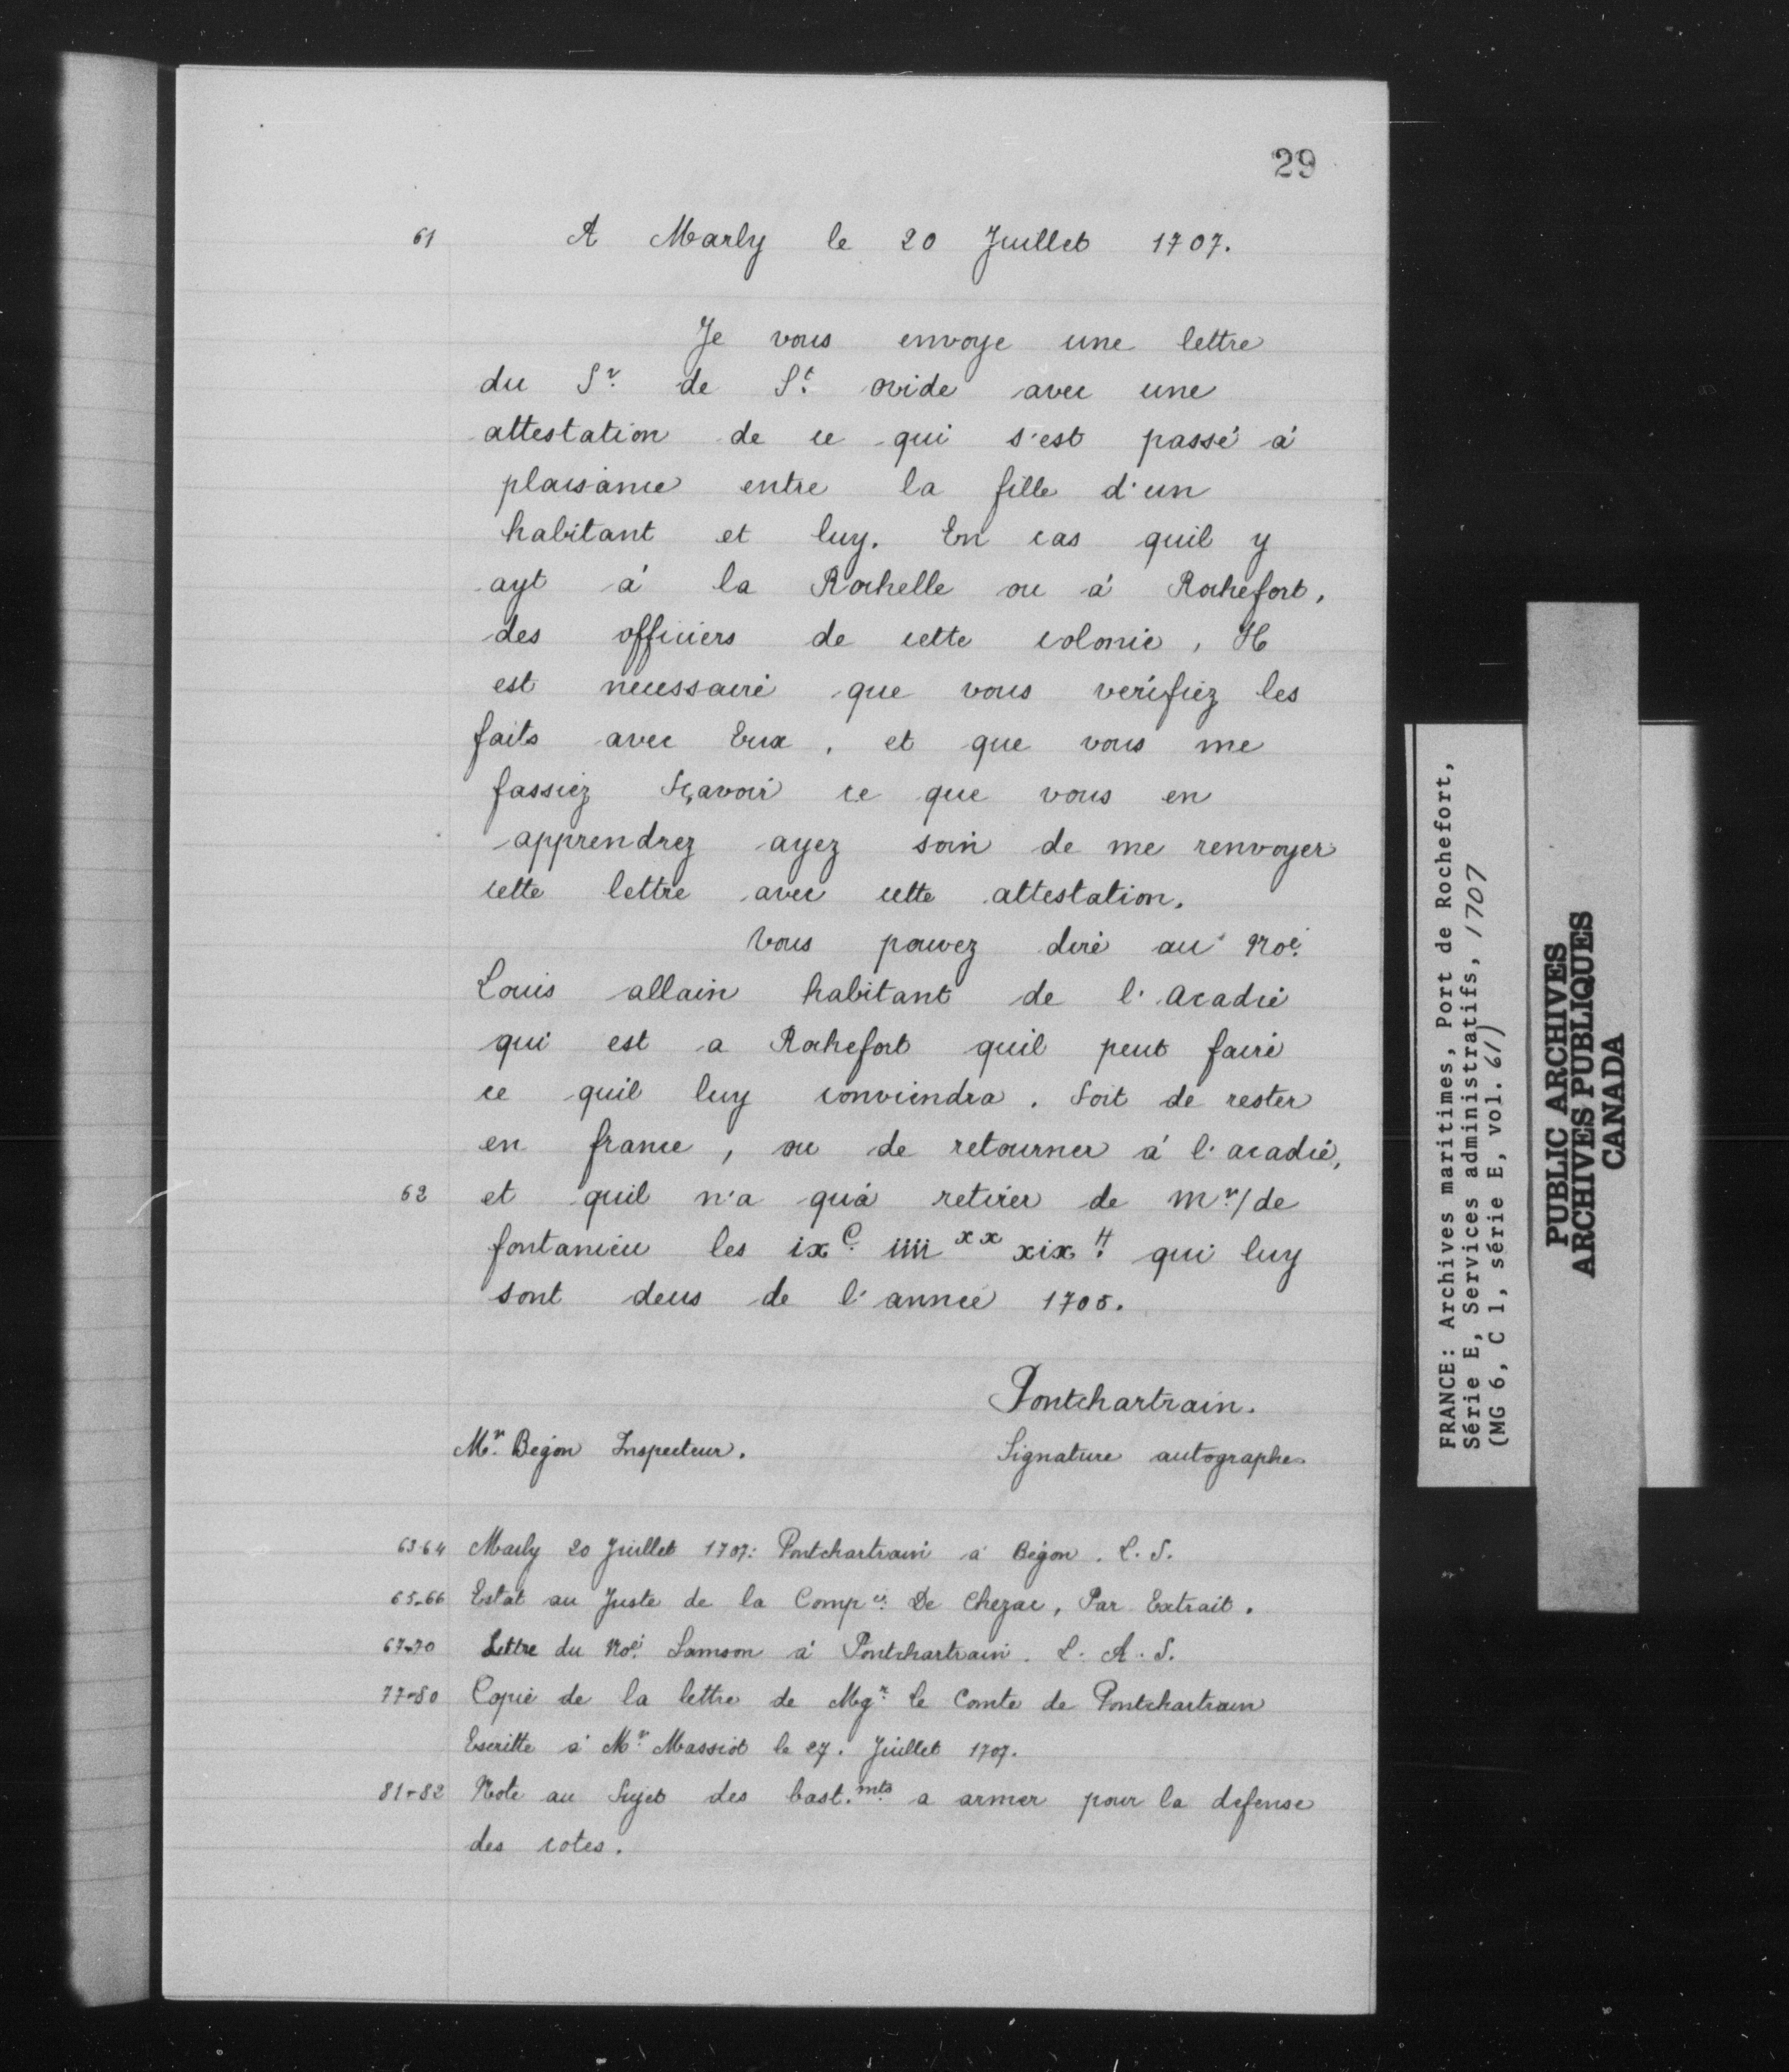 29
61 A Marly le 20 Juillet 1707.
Je vous envoye une lettre
du Sr. de St. ovide avec une
attestation de ce qui s'est passé à
plaisance entre la fille d'un
habitant et luy. En cas quil y
ayt à la Rochelle ou à Rochefort,
des officiers de cette colonie, Il
est necessaire que vous verifiez les
faits avec Eux, et que vous me
fassiez Sçavoir ce que vous en
apprendrez ayez soin de me renvoyer
cette lettre avec cette attestation.
Vous pouvez dire au Noé.
Louis allain habitant de l'Acadie
qui est a Rochefort quil peut faire
ce quil luy conviendra. Soit de rester
en france, ou de retourner à l'acadie,
62 et quil n'a qu'à retirer de Mr./de
fontanieu les ixC. iiiixx xix# qui luy
sont deus de l'année 1705.
Pontchartrain.
Mr. Begon Inspecteur. Signature autographe
63-64 Marly 20 Juillet 1707: Pontchartrain à Bégon. L. S.
65-66 Estat au Juste de la Compie. De Chezac, Par Extrait.
67-70 Lettre du Noé. Samson à Pontchartrain. L. A. S.
77-80 Copie de la lettre de Mgr. le Comte de Pontchartrain
Escritte à Mr. Massiot le 27. Juillet 1707.
81-82 Note au Sujet des bast.mts a armer pour la defense
des cotes.
FRANCE: Archives maritimes, Port de Rochefort,
Série E, Services administratifs, 1707
(MG 6, C 1, série E, vol. 61)
PUBLIC ARCHIVES
ARCHIVES PUBLIQUES
CANADA